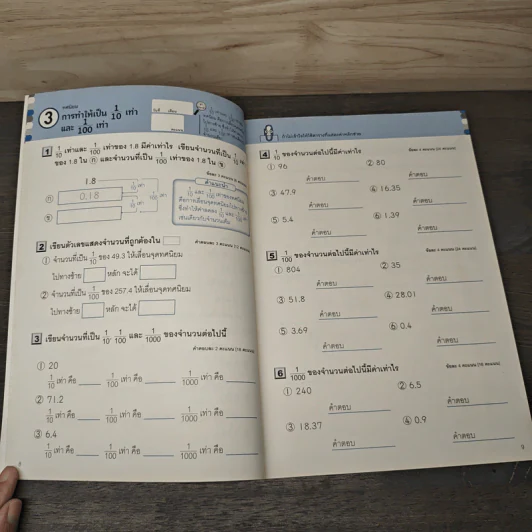 3
ทศนิยม
การทำให้เป็น 1/10 เท่า
และ 1/100 เท่า
วันที่ เดือน
คะแนน
1 1/10 เท่าและ 1/100 เท่าของ 1.8 มีค่าเท่าไร เขียนจำนวนที่เป็น 1/10 เท่า
ของ 1.8 ใน ㋐ และจำนวนที่เป็น 1/100 เท่าของ 1.8 ใน
1.8
0.18
1/10 เท่า
1/10 เท่า
1/100 เท่า
คำแนะนำ
1/10 และ 1/100 เท่าของทศนิยม
2 เขียนตัวเลขแสดงจำนวนที่ถูกต้องใน
① จำนวนที่เป็น 1/10 ของ 49.3 ให้เลื่อนจุดทศนิยม
ไปทางซ้าย หลัก จะได้
② จำนวนที่เป็น 1/100 ของ 257.4 ให้เลื่อนจุดทศนิยม
ไปทางซ้าย หลัก จะได้
3 เขียนจำนวนที่เป็น 1/10 1/100 และ 1/1000 ของจำนวนต่อไปนี้
① 20
1/10 เท่า คือ 1/100 เท่า คือ 1/1000 เท่า คือ
② 71.2
1/10 เท่า คือ 1/100 เท่า คือ 1/1000 เท่า คือ
③ 6.4
1/10 เท่า คือ 1/100 เท่า คือ 1/1000 เท่า คือ
8
4 1/10 ของจำนวนต่อไปนี้มีค่าเท่าไร
① 96 ② 80
คำตอบ คำตอบ
③ 47.9 ④ 16.35
คำตอบ คำตอบ
⑤ 5.4 ⑥ 1.39
คำตอบ คำตอบ
5 1/100 ของจำนวนต่อไปนี้มีค่าเท่าไร
① 804 ② 35
คำตอบ คำตอบ
③ 51.8 ④ 28.01
คำตอบ คำตอบ
⑤ 3.69 ⑥ 0.4
คำตอบ คำตอบ
6 1/1000 ของจำนวนต่อไปนี้มีค่าเท่าไร
① 240 ② 6.5
คำตอบ คำตอบ
③ 18.37 ④ 0.9
คำตอบ คำตอบ
9